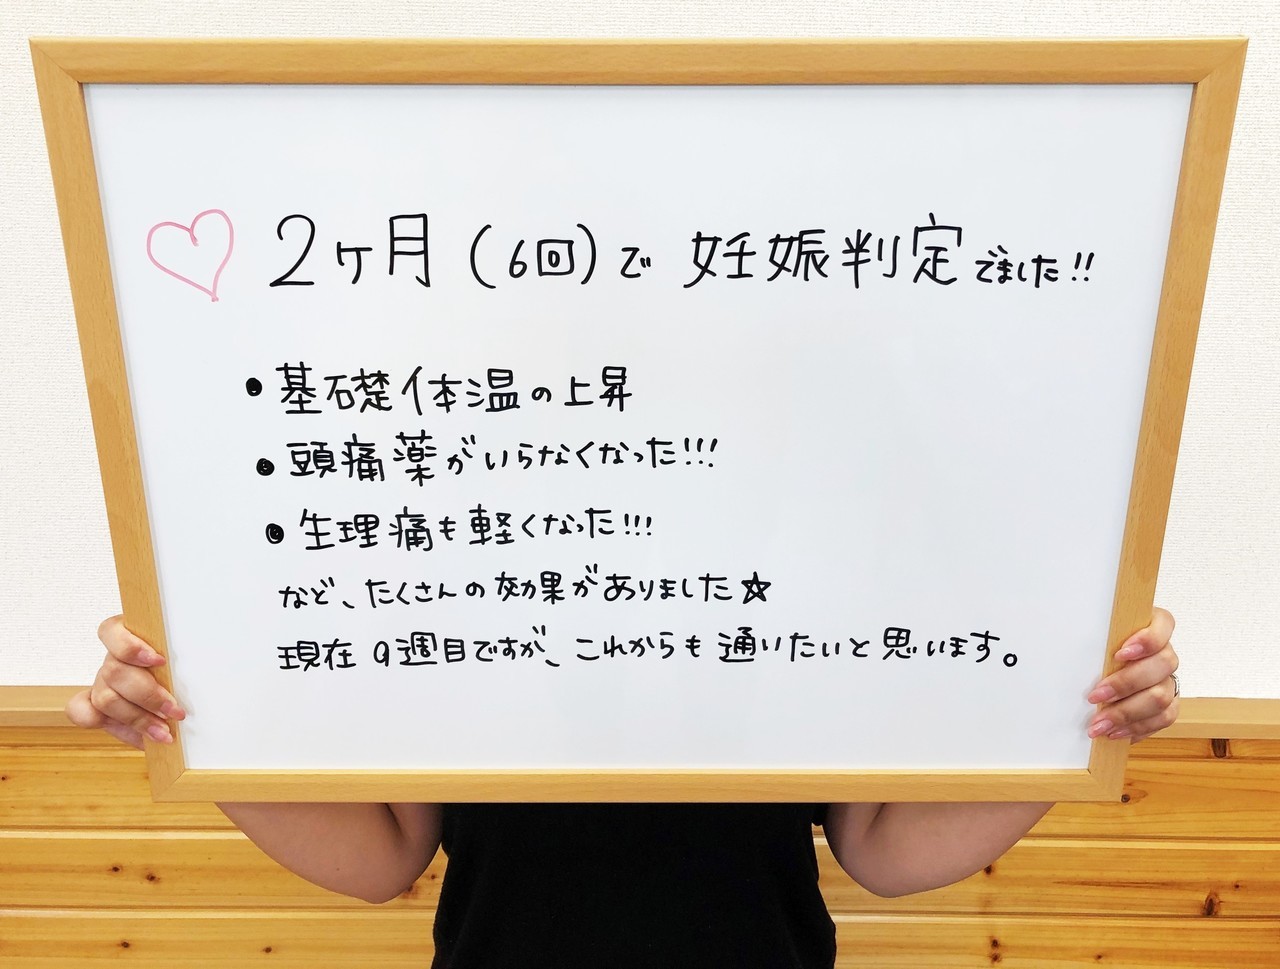 ♡ 2ヶ月(6回)で 妊娠判定でました!!
• 基礎体温の上昇
• 頭痛薬がいらなくなった!!!
• 生理痛も軽くなった!!!
など、たくさんの効果がありました☆
現在9週目ですが、これからも通いたいと思います。